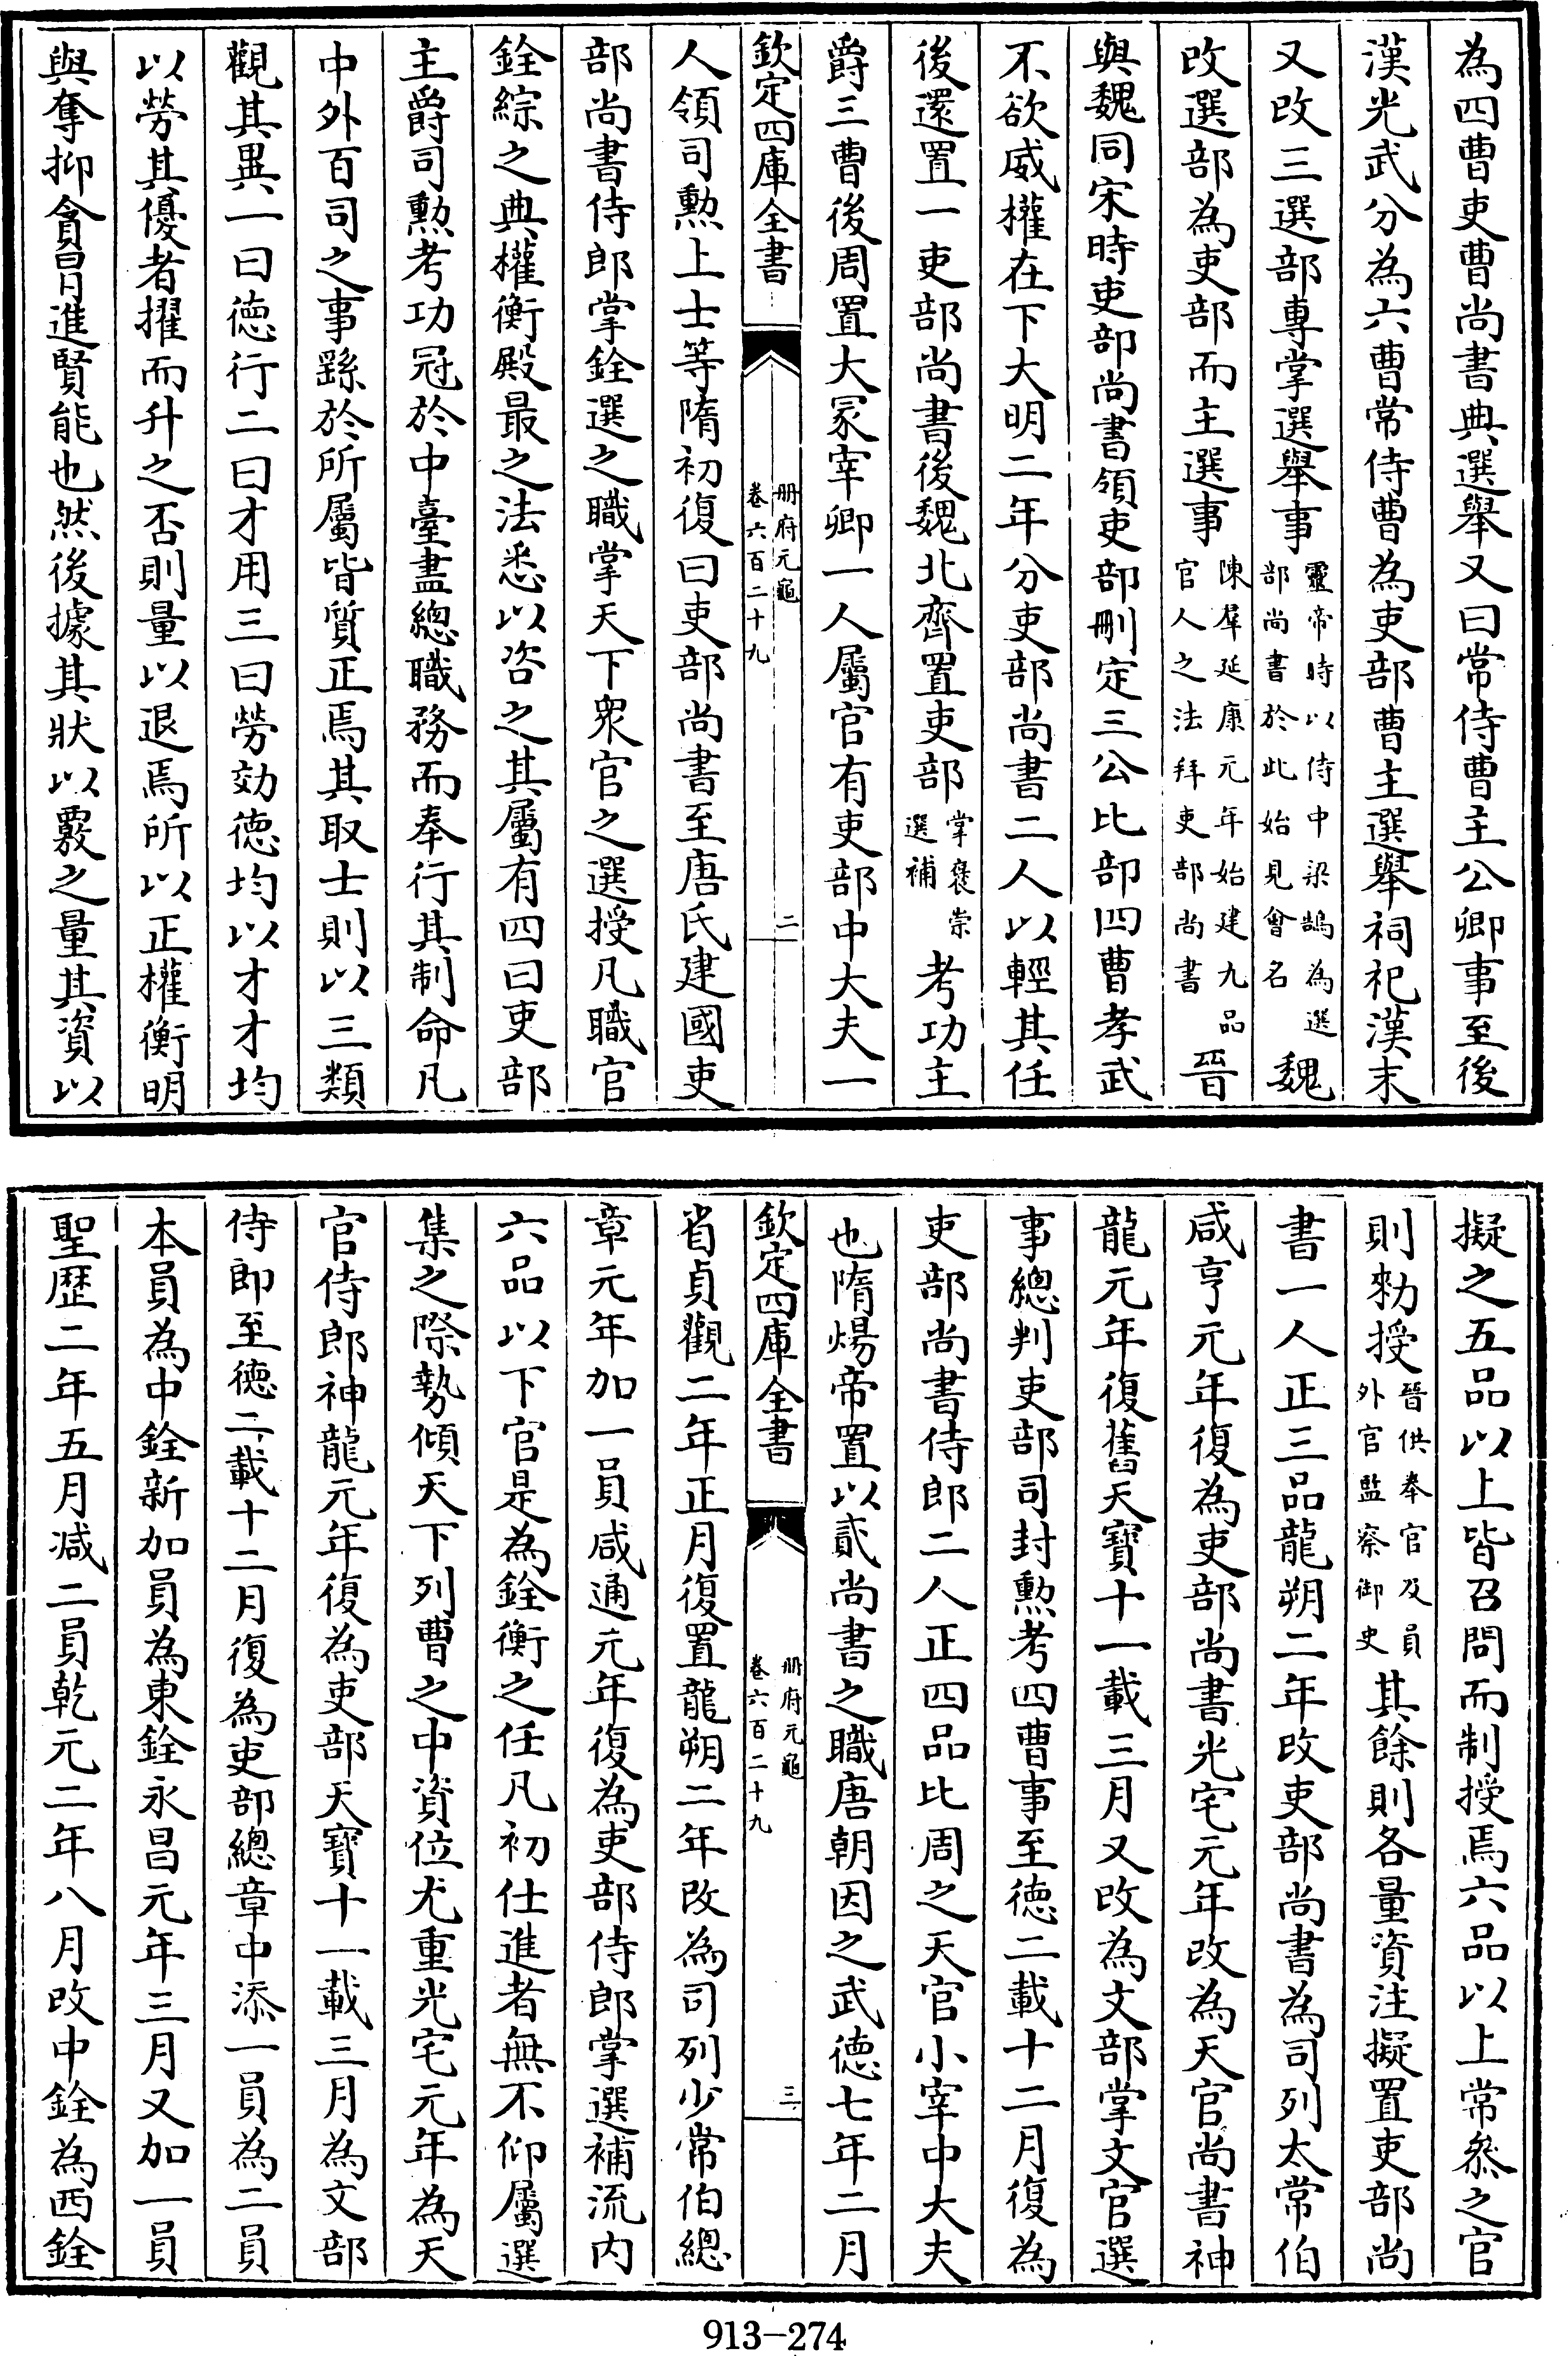 為四曹吏曹尚書典選舉又曰常侍曹主公卿事至後
漢光武分為六曹常侍曹為吏部曹主選舉祠祀漢末
又改三選部專掌選舉事靈帝時以侍中梁鵠為選部尚書於此始見曹名魏
改選部為吏部而主選事陳羣延康元年始建九品官人之法拜吏部尚書晉
與魏同宋時吏部尚書領吏部刪定三公比部四曹孝武
不欲威權在下大明二年分吏部尚書二人以輕其任
後還置一吏部尚書後魏北齊置吏部掌襃崇選補考功主
爵三曹後周置大冢宰卿一人屬官有吏部中大夫一
欽定四庫全書
冊府元龜
卷六百二十九
二
人領司勲上士等隋初復曰吏部尚書至唐氏建國吏
部尚書侍郎掌銓選之職掌天下衆官之選授凡職官
銓綜之典權衡殿最之法悉以咨之其屬有四曰吏部
主爵司勲考功冠於中臺盡總職務而奉行其制命凡
中外百司之事繇於所屬皆質正焉其取士則以三類
觀其異一曰德行二曰才用三曰勞効德均以才才均
以勞其優者擢而升之否則量以退焉所以正權衡明
與奪抑貪冒進賢能也然後據其狀以覈之量其資以
擬之五品以上皆召問而制授焉六品以上常叅之官
則勑授晉供奉官及員外官監察御史其餘則各量資注擬置吏部尚
書一人正三品龍朔二年改吏部尚書為司列太常伯
咸亨元年復為吏部尚書光宅元年改為天官尚書神
龍元年復舊天寶十一載三月又改為文部掌文官選
事總判吏部司封勲考四曹事至德二載十二月復為
吏部尚書侍郎二人正四品比周之天官小宰中大夫
也隋煬帝置以貳尚書之職唐朝因之武德七年二月
欽定四庫全書
冊府元龜
卷六百二十九
三
省貞觀二年正月復置龍朔二年改為司列少常伯總
章元年加一員咸通元年復為吏部侍郎掌選補流内
六品以下官是為銓衡之任凡初仕進者無不仰屬選
集之際勢傾天下列曹之中資位尤重光宅元年為天
官侍郎神龍元年復為吏部天寶十一載三月為文部
侍郎至德二載十二月復為吏部總章中添一員為二員
本員為中銓新加員為東銓永昌元年三月又加一員
聖歷二年五月減二員乾元二年八月改中銓為西銓
913-274